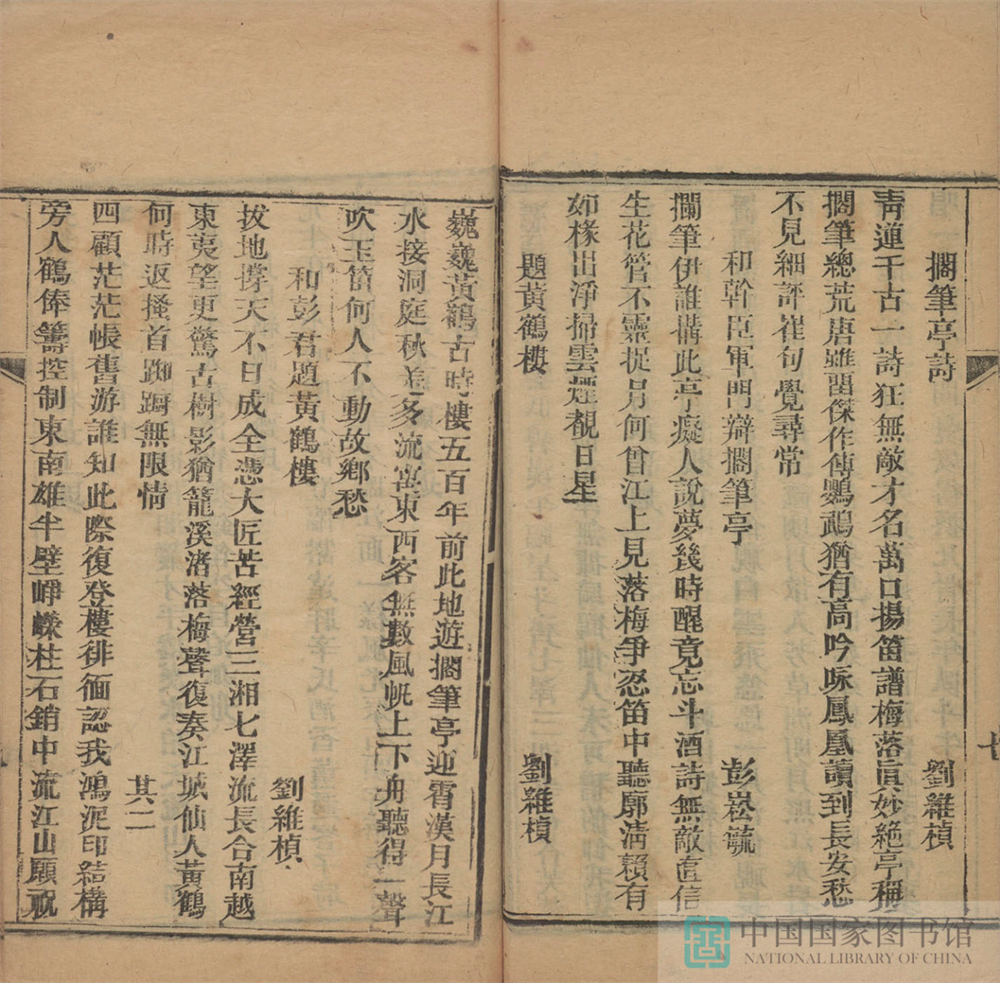 擱筆亭詩 劉維楨
靑蓮千古一詩狂無敵才名萬口揚笛譜梅落眞妙絕亭稱
擱筆總荒唐雖留傑作傳鸚鵡猶有高吟咏鳳凰讀到長安愁
不見細評崔句覺尋常
和幹臣軍門辯擱筆亭 彭崧毓
擱筆伊誰搆此亭癡人說夢幾時醒竟忘斗酒詩無敵直信
生花管不靈捉月何曾江上見落梅爭忍笛中聽廓淸賴有
如椽出淨掃雲煙覩日星
題黃鶴樓 劉維楨
巍巍黃鶴古時樓五百年前此地遊擱筆亭迎霄漢月長江
水接洞庭秋差多流寓東西客無數風帆上下舟聽得一聲
吹玉笛何人不動故鄉愁
和彭君題黃鶴樓 劉維楨
拔地撐天不日成全憑大匠苦經營三湘七澤流長合南越
東夷望更驚古樹影猶籠溪渚落梅聲復奏江城仙人黃鶴
何時返搔首踟蹰無限情
其二
四顧茫茫悵舊游誰知此際復登樓徘徊認我鴻泥印結構
旁人鶴俸籌控制東南雄半壁崢嶸柱石銷中流江山願祝
七
中国国家图书馆
NATIONAL LIBRARY OF CHINA